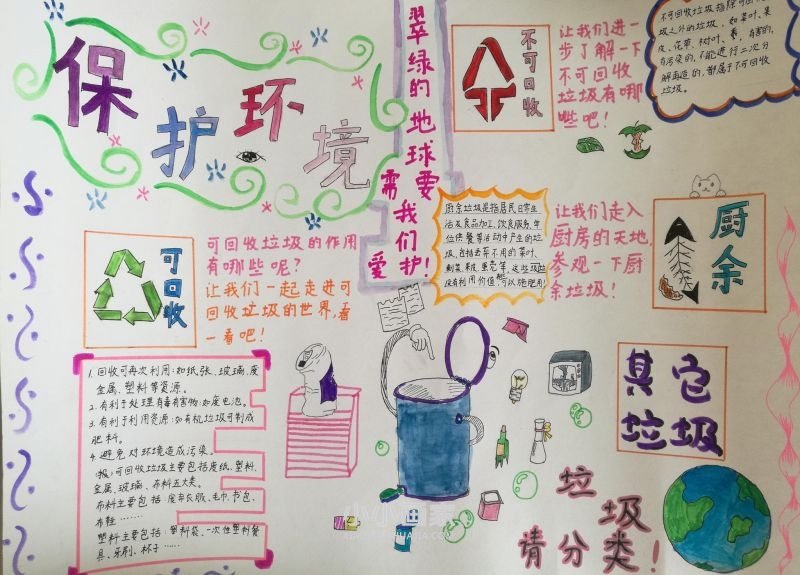 保护环境
翠绿的地球要
需我们
爱护!
不可回收
让我们进一
步了解一下
不可回收
垃圾有哪
些吧!
不可回收垃圾指除可回收垃
圾之外的垃圾,如菜叶、果
皮、花草、树叶、
有污染的,不能进行二次分
解再造的,都属于不可回收
垃圾。
可回收
可回收垃圾的作用
有哪些呢?
让我们一起走进可
回收垃圾的世界,看
一看吧!
厨余垃圾是指居民日常生
活及食品加工、饮食服务、单
位供餐等活动中产生的垃
圾,包括丢弃不用的菜叶、
剩菜、果皮、蛋壳等,这些垃圾
没有利用价值,可以施肥用!
让我们走入
厨房的天地,
参观一下厨
余垃圾!
厨余
1.回收可再次利用:如纸张、玻璃、废
金属、塑料等资源。
2.有利于处理有毒有害物:如废电池。
3.有利于利用资源:如有机垃圾可制成
肥料。
4.避免对环境造成污染。
可回收垃圾主要包括废纸、塑料、
金属、玻璃、布料五大类。
布料主要包括:废弃衣服、毛巾、书包、
布鞋……
塑料主要包括:塑料袋、一次性塑料餐
具、牙刷、杯子……
其它
垃圾
垃圾
请分类!